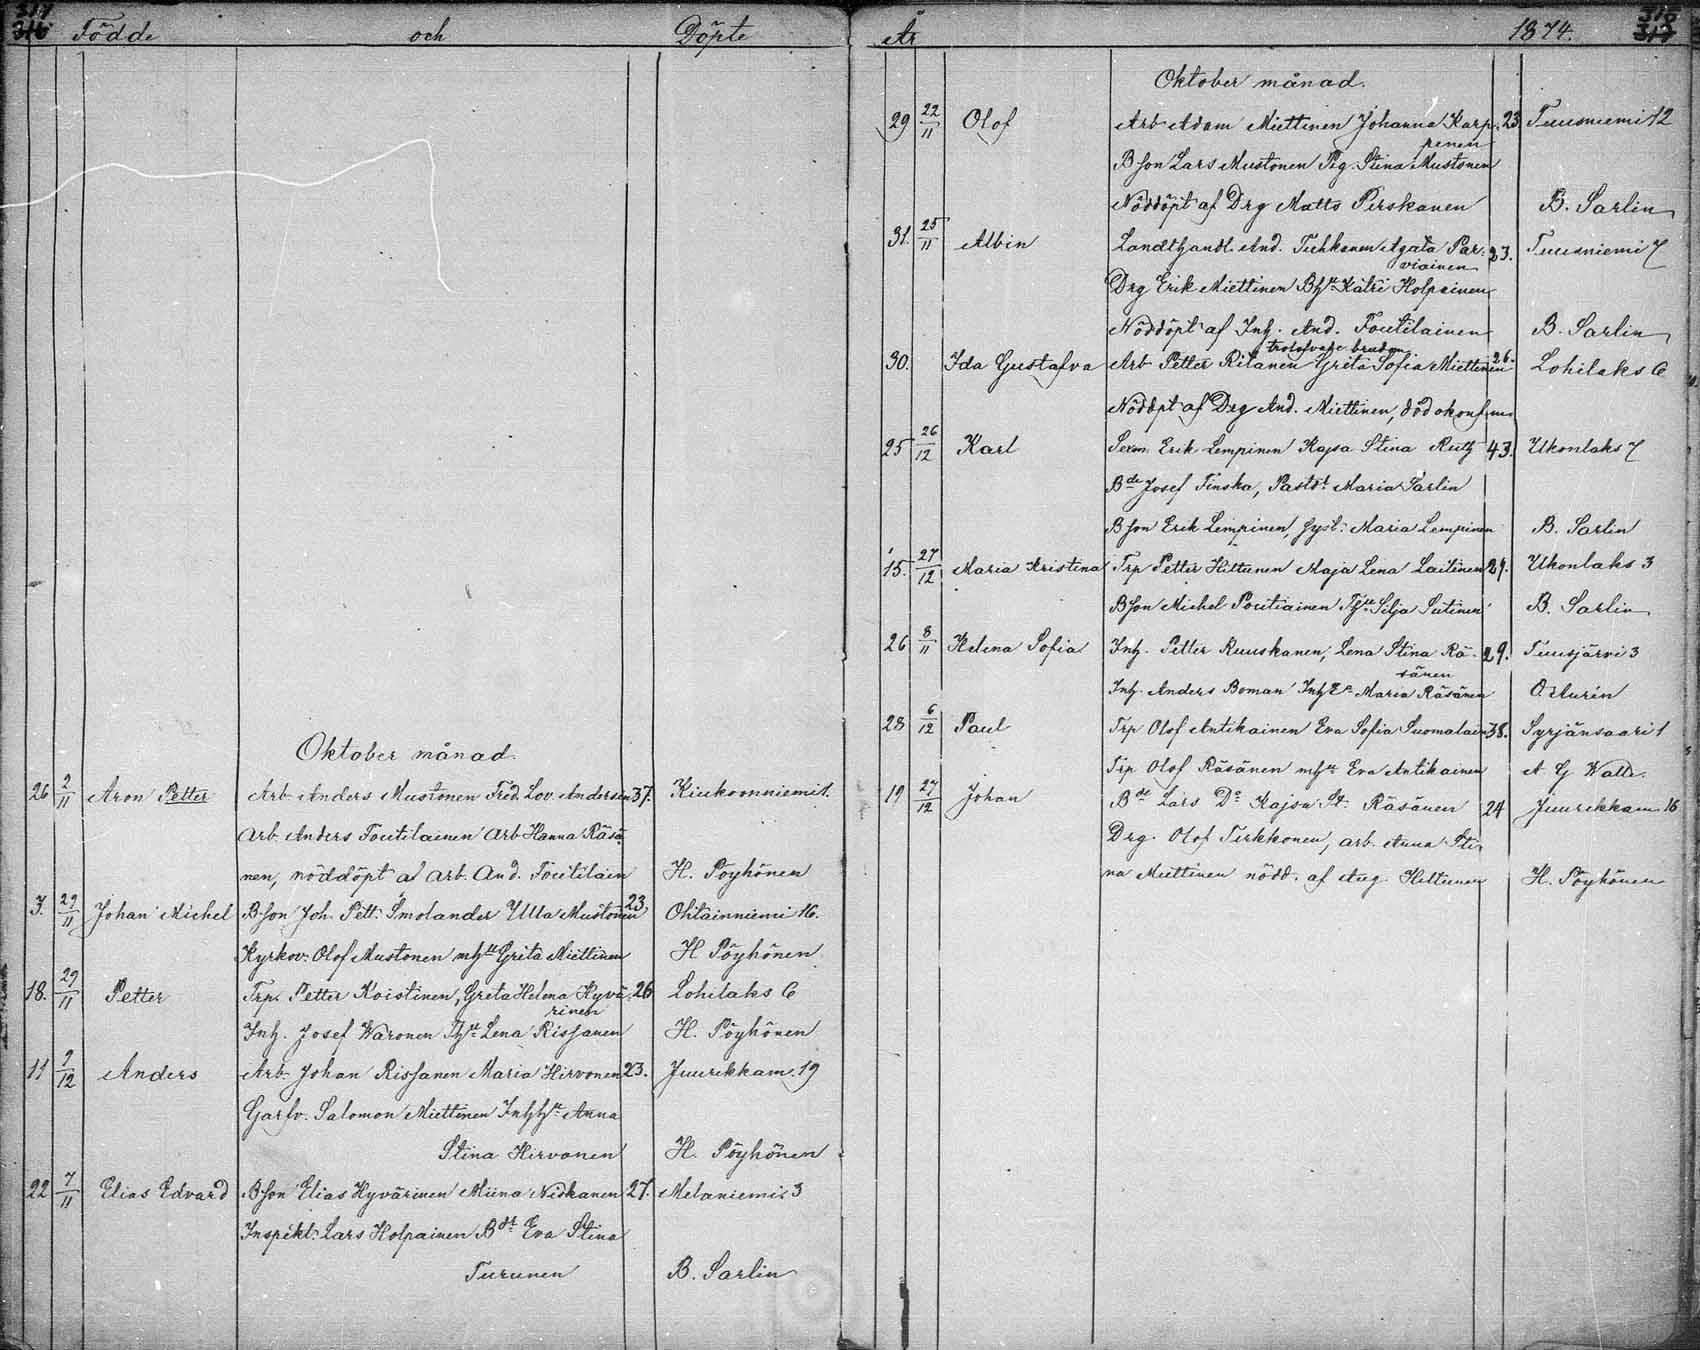 317
316 Födde och Döpte
Oktober månad.
26 2/11 Aron Petter Arb Anders Mustonen Fred. Lov. Andersen 37. Kiukoonniemi 1.
Arb. Anders Toutilainen Arb Hanna Räsä
nen, nöddöpt af Arb. And. Toutilain H. Pöyhönen
3. 29/11 Johan Michel B.son Joh. Pett. Smolander Ulla Mustonen 23 Ohtainniemi 16.
Kyrkov: Olof Mustonen mhu Greta Miettinen H Pöyhönen
18. 29/11 Petter Trp. Petter Koistinen, Greta Helena Hyvä 26 Lohilaks 6
rinen
Inh. Josef Waronen Thu Lena Rissanen H. Pöyhönen
11 9/12 Anders Arb. Johan Rissanen Maria Hirvonen 23. Juurikkam. 19
Garfv. Salomon Miettinen Inhhu Anna
Stina Hirvonen H. Pöyhönen
22 7/11 Elias Edvard B.son Elias Hyvärinen Miina Niskanen 27. Melaniemi 3
Inspekt: Lars Holpainen Bdt Eva Stina
Turunen B. Sarlin
År 1874. 318
317
Oktober månad.
29 22/11 Olof Arb Adam Miettinen Johanna Karp 23 Tuusniemi 12
pinen
B son Lars Mustonen Pig. Stina Mustonen
Nöddöpt af Drg Matts Pirskanen B. Sarlin
31. 25/11 Albin Landthandl. And. Tuhkanen Agata Par. 23. Tuusniemi 7
viainen
Drg Erik Miettinen Bhu Kätri Holpainen
Nöddöpt af Inh. And. Toutilainen B. Sarlin
trolofvade brudem
30. Ida Gustafva Arb Petter Ritanen Greta Sofia Miettinen 26. Lohilaks 6
Nöddpt af Drg And. Miettinen, död okonfirm
25 26/12 Karl Sexm. Erik Lempinen Kajsa Stina Ruth 43. Ukonlaks 7
Bde Josef Tinska, Pastdt Maria Sarlin
B son Erik Lempinen, Maria Lempinen B. Sarlin
15. 27/12 Maria Kristina Trp Petter Hiltunen Maja Lena Laitinen 29. Ukonlaks 3
B son Michel Poutiainen Thu Silja Sutinen B. Sarlin
26 8/11 Helena Sofia Inh. Petter Ruuskanen, Lena Stina Rä- 29. Tuusjärvi 3
sänen
Inh. Anders Boman Inh Ea Maria Räsänen O. Aurén
28 6/12 Paul Trp Olof Antikainen Eva Sofia Suomalain 38. Syrjänsaari 1
Trp Olof Räsänen mhu Eva Antikainen A G Walle.
19 27/12 Johan Bde Lars Do Kajsa St. Räsänen 24 Juurikkam. 16
Drg. Olof Tirkkonen, arb. Anna Sti
na Miettinen nödd. af Aug. Hiltunen H. Pöyhönen